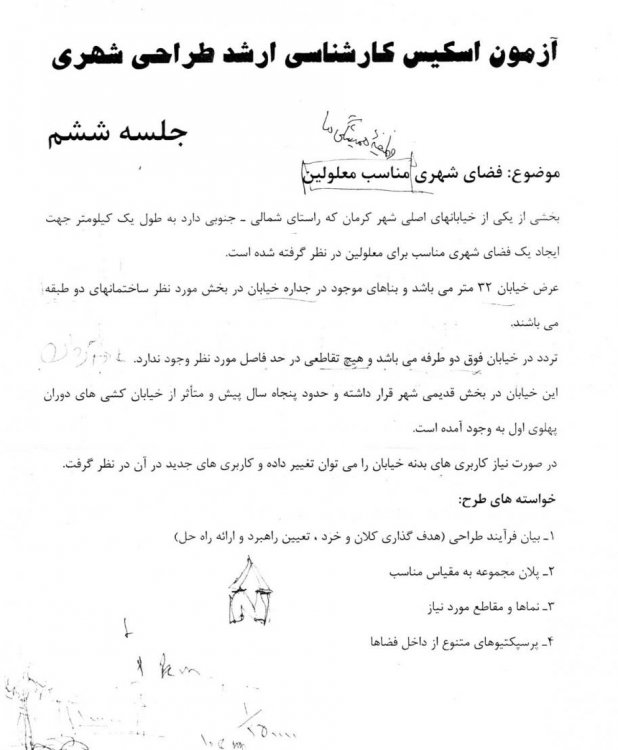 آزمون اسکیس کارشناسی ارشد طراحی شهری
جلسه ششم
موضوع: فضای شهری مناسب معلولین
بخشی از یکی از خیابانهای اصلی شهر کرمان که راستای شمالی ـ جنوبی دارد به طول یک کیلومتر جهت
ایجاد یک فضای شهری مناسب برای معلولین در نظر گرفته شده است.
عرض خیابان ۳۲ متر می باشد و بناهای موجود در جداره خیابان در بخش مورد نظر ساختمانهای دو طبقه
می باشند.
تردد در خیابان فوق دو طرفه می باشد و هیچ تقاطعی در حد فاصل مورد نظر وجود ندارد.
این خیابان در بخش قدیمی شهر قرار داشته و حدود پنجاه سال پیش و متأثر از خیابان کشی های دوران
پهلوی اول به وجود آمده است.
در صورت نیاز کاربری های بدنه خیابان را می توان تغییر داده و کاربری های جدید در آن در نظر گرفت.
خواسته های طرح:
۱ـ بیان فرآیند طراحی (هدف گذاری کلان و خرد ، تعیین راهبرد و ارائه راه حل)
۲ـ پلان مجموعه به مقیاس مناسب
۳ـ نماها و مقاطع مورد نیاز
۴ـ پرسپکتیوهای متنوع از داخل فضاها
1 km